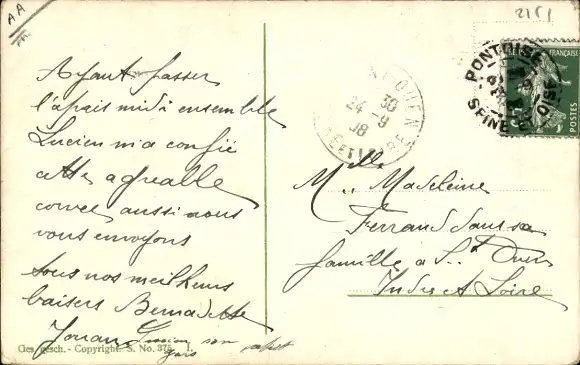 AA
Ayant passer
l'après midi ensemble
Lucien m'a confié
cette agréable
corvée aussi nous
vous envoyons
tous nos meilleurs
baisers Bernadette
Ges. gesch. - Copyright. S. No. 375
PONTOISE
SEINE ET OISE
FRANÇAISE
POSTES
ST OUEN
30
24 - 9
38
Mlle Madeleine
Ferrand dans sa
famille à St Ouen
Indre et Loire